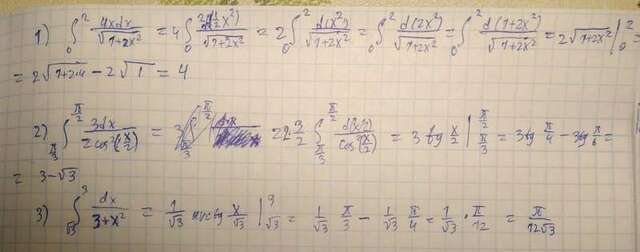 1) ∫₀² 4xdx/√(1+2x²) = 4 ∫₀² d(½x²)/√(1+2x²) = 2 ∫₀² d(x²)/√(1+2x²) = ∫₀² d(2x²)/√(1+2x²) = ∫₀² d(1+2x²)/√(1+2x²) = 2√(1+2x²) |₀² =
= 2√(1+2·4) − 2√1 = 4
2) ∫_{π/3}^{π/2} 3dx/(2cos²(x/2)) = = 2·3/2 ∫_{π/3}^{π/2} d(x/2)/cos²(x/2) = 3 tg x/2 |_{π/3}^{π/2} = 3tg π/4 − 3tg π/6 =
= 3−√3
3) ∫_{√3}^{3} dx/(3+x²) = 1/√3 arctg x/√3 |_{√3}^{3} = 1/√3 π/3 − 1/√3 π/4 = 1/√3 · π/12 = π/(12√3)